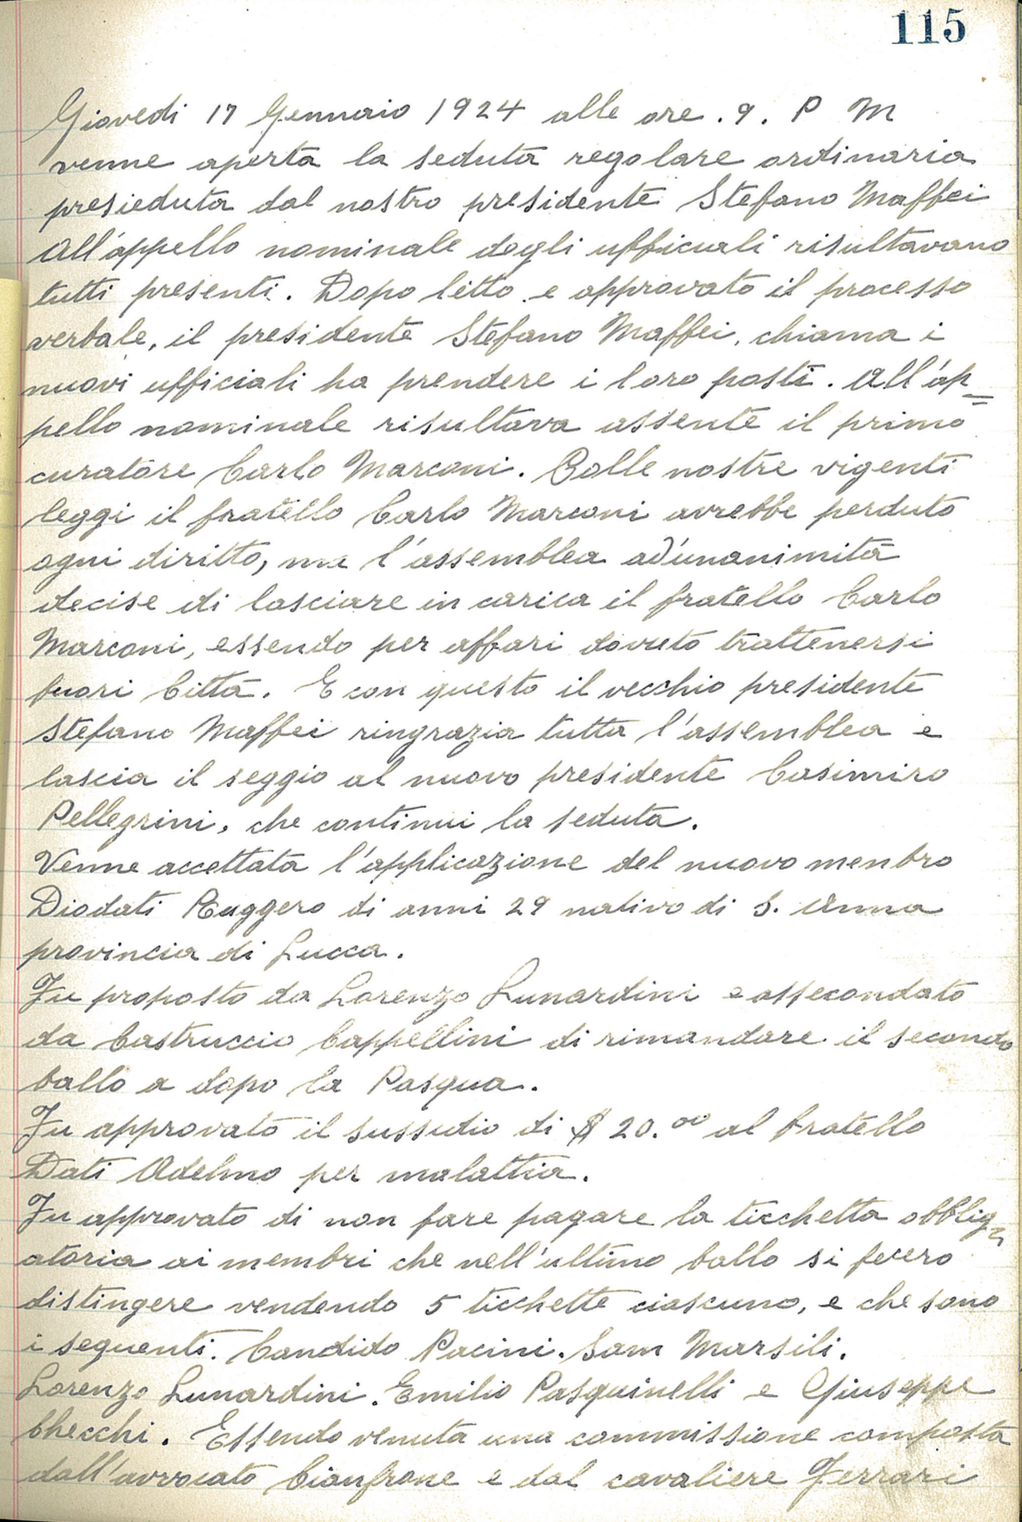 115
Giovedi 17 Gennaio 1924 alle ore . 9 . P M
venne aperta la seduta regolare ordinaria
presieduta dal nostro presidente Stefano Maffei
All'appello nominale degli ufficiali risultavano
tutti presenti. Dopo letto e approvato il processo
verbale, il presidente Stefano Maffei, chiama i
nuovi ufficiali ha prendere i loro posti. All'ap=
pello nominale risultava assente il primo
curatore Carlo Marconi. Colle nostre vigenti
leggi il fratello Carlo Marconi avrebbe perduto
ogni diritto, ma l'assemblea ad'unanimità
decise di lasciare in carica il fratello Carlo
Marconi, essendo per affari dovuto trattenersi
fuori Città. E con questo il vecchio presidente
Stefano Maffei ringrazia tutta l'assemblea e
lascia il seggio al nuovo presidente Casimiro
Pellegrini, che continui la seduta.
Venne accettata l'applicazione del nuovo menbro
Diodati Ruggero di anni 29 nativo di S. Anna
provincia di Lucca.
Fu proposto da Lorenzo Lunardini e assecondato
da Castruccio Cappellini di rimandare il secondo
ballo a dopo la Pasqua.
Fu approvato il sussidio di $ 20.00 al fratello
Dati Adelmo per malattia.
Fu approvato di non fare pagare la ticchetta obblig=
atoria ai membri che nell'ultimo ballo si fecero
distingere vendendo 5 ticchette ciascuno, e che sono
i seguenti. Candido Pacini. Sam Marsili.
Lorenzo Lunardini. Emilio Pasquinelli e Giuseppe
Checchi. Essendo venuta una commissione composta
dall'avvocato Cianfrone e dal cavaliere Ferrari